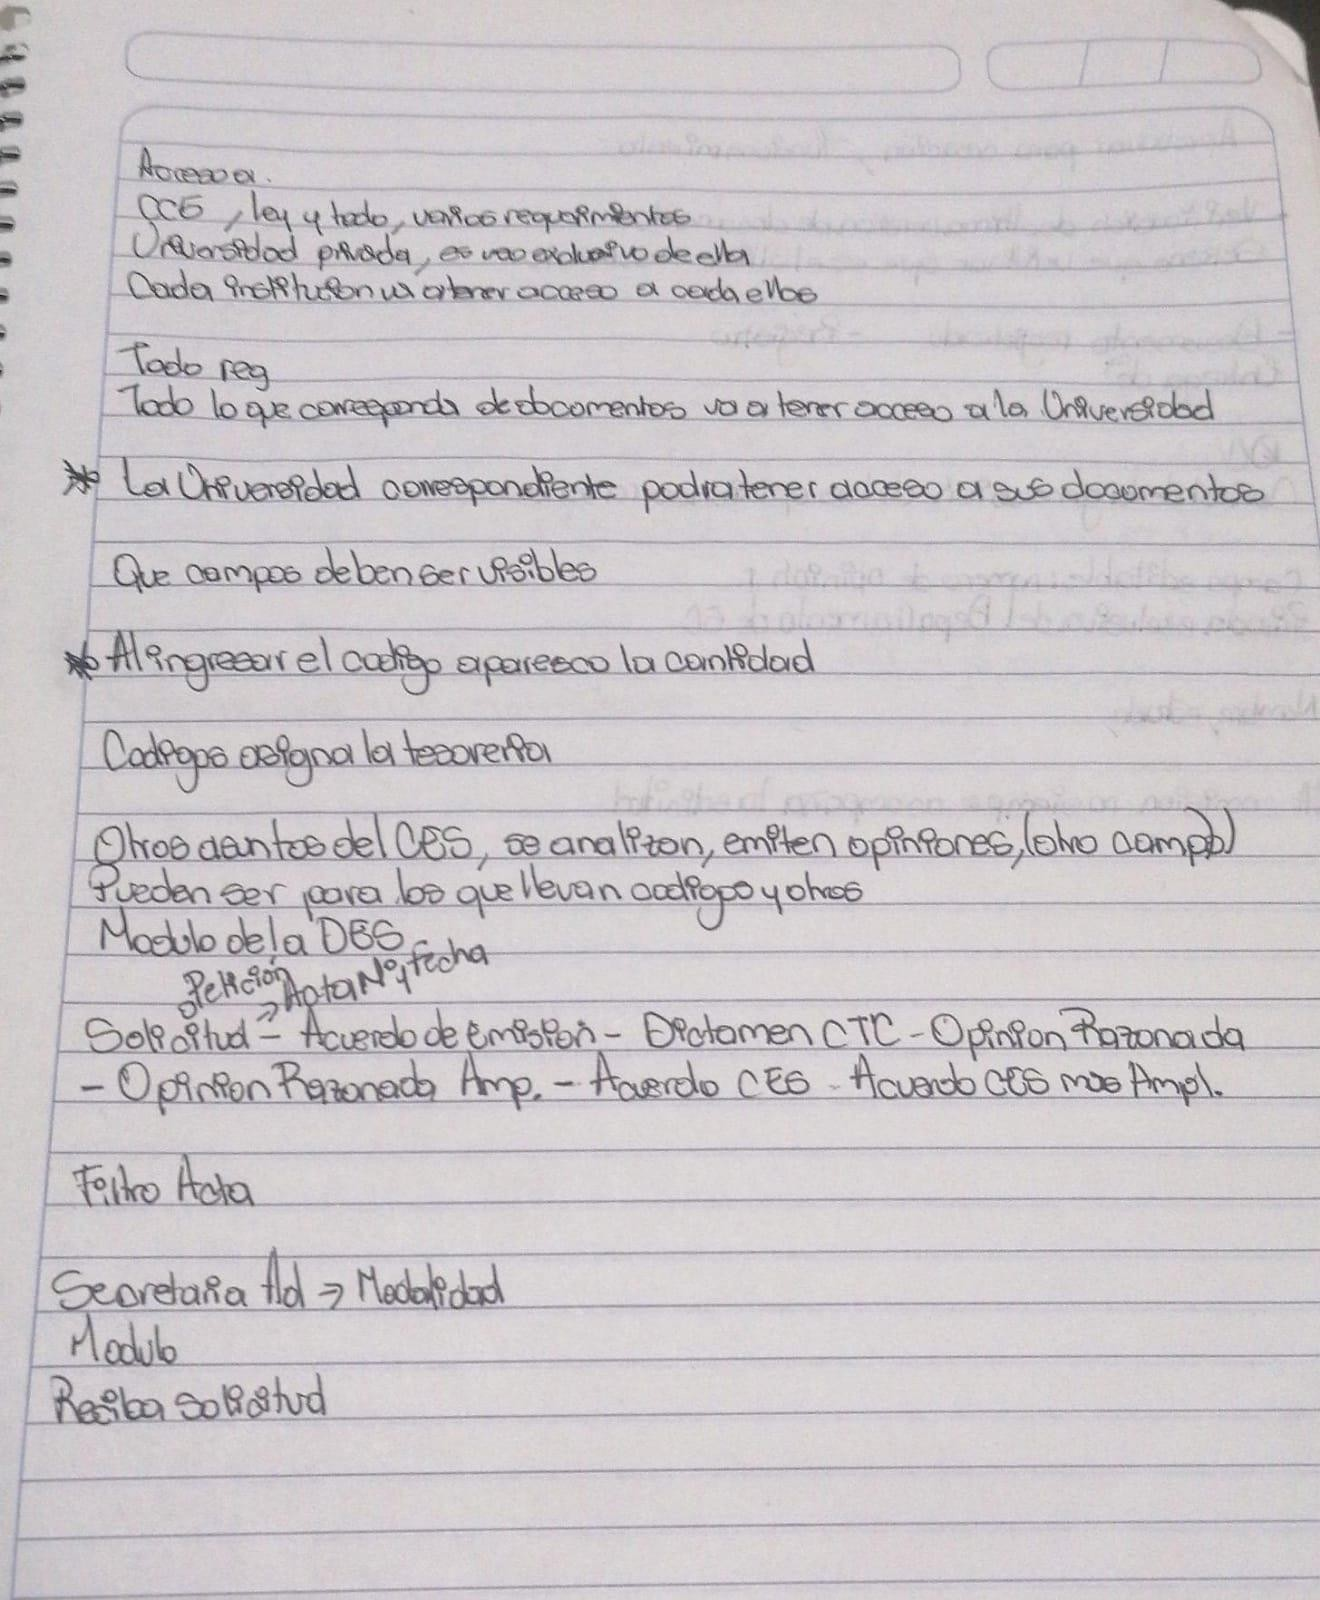 Acceso a.
CCS, ley y todo, varios requerimientos
Universidad privada, es uso exclusivo de ella
Cada institucion va a tener acceso a cada ellos
Todo reg
Todo lo que corresponda de documentos va a tener acceso a la Universidad
* La Universidad correspondiente podra tener acceso a sus documentos
Que campos deben ser visibles
* Al ingresar el codigo aparesco la cantidad
Codigos asigna la tesoreria
Otros dentros del CES, se analizan, emiten opiniones, (otro campo)
Pueden ser para los que llevan codigos y otros
Modulo de la DES
Petición Acta N° y fecha
Solicitud - Acuerdo de Emisión - Dictamen CTC - Opinion Razonada
- Opinion Razonada Amp. - Acuerdo CES - Acuerdo CES mas Ampl.
Filtro Acta
Secretaria Ad → Modalidad
Modulo
Reciba solicitud